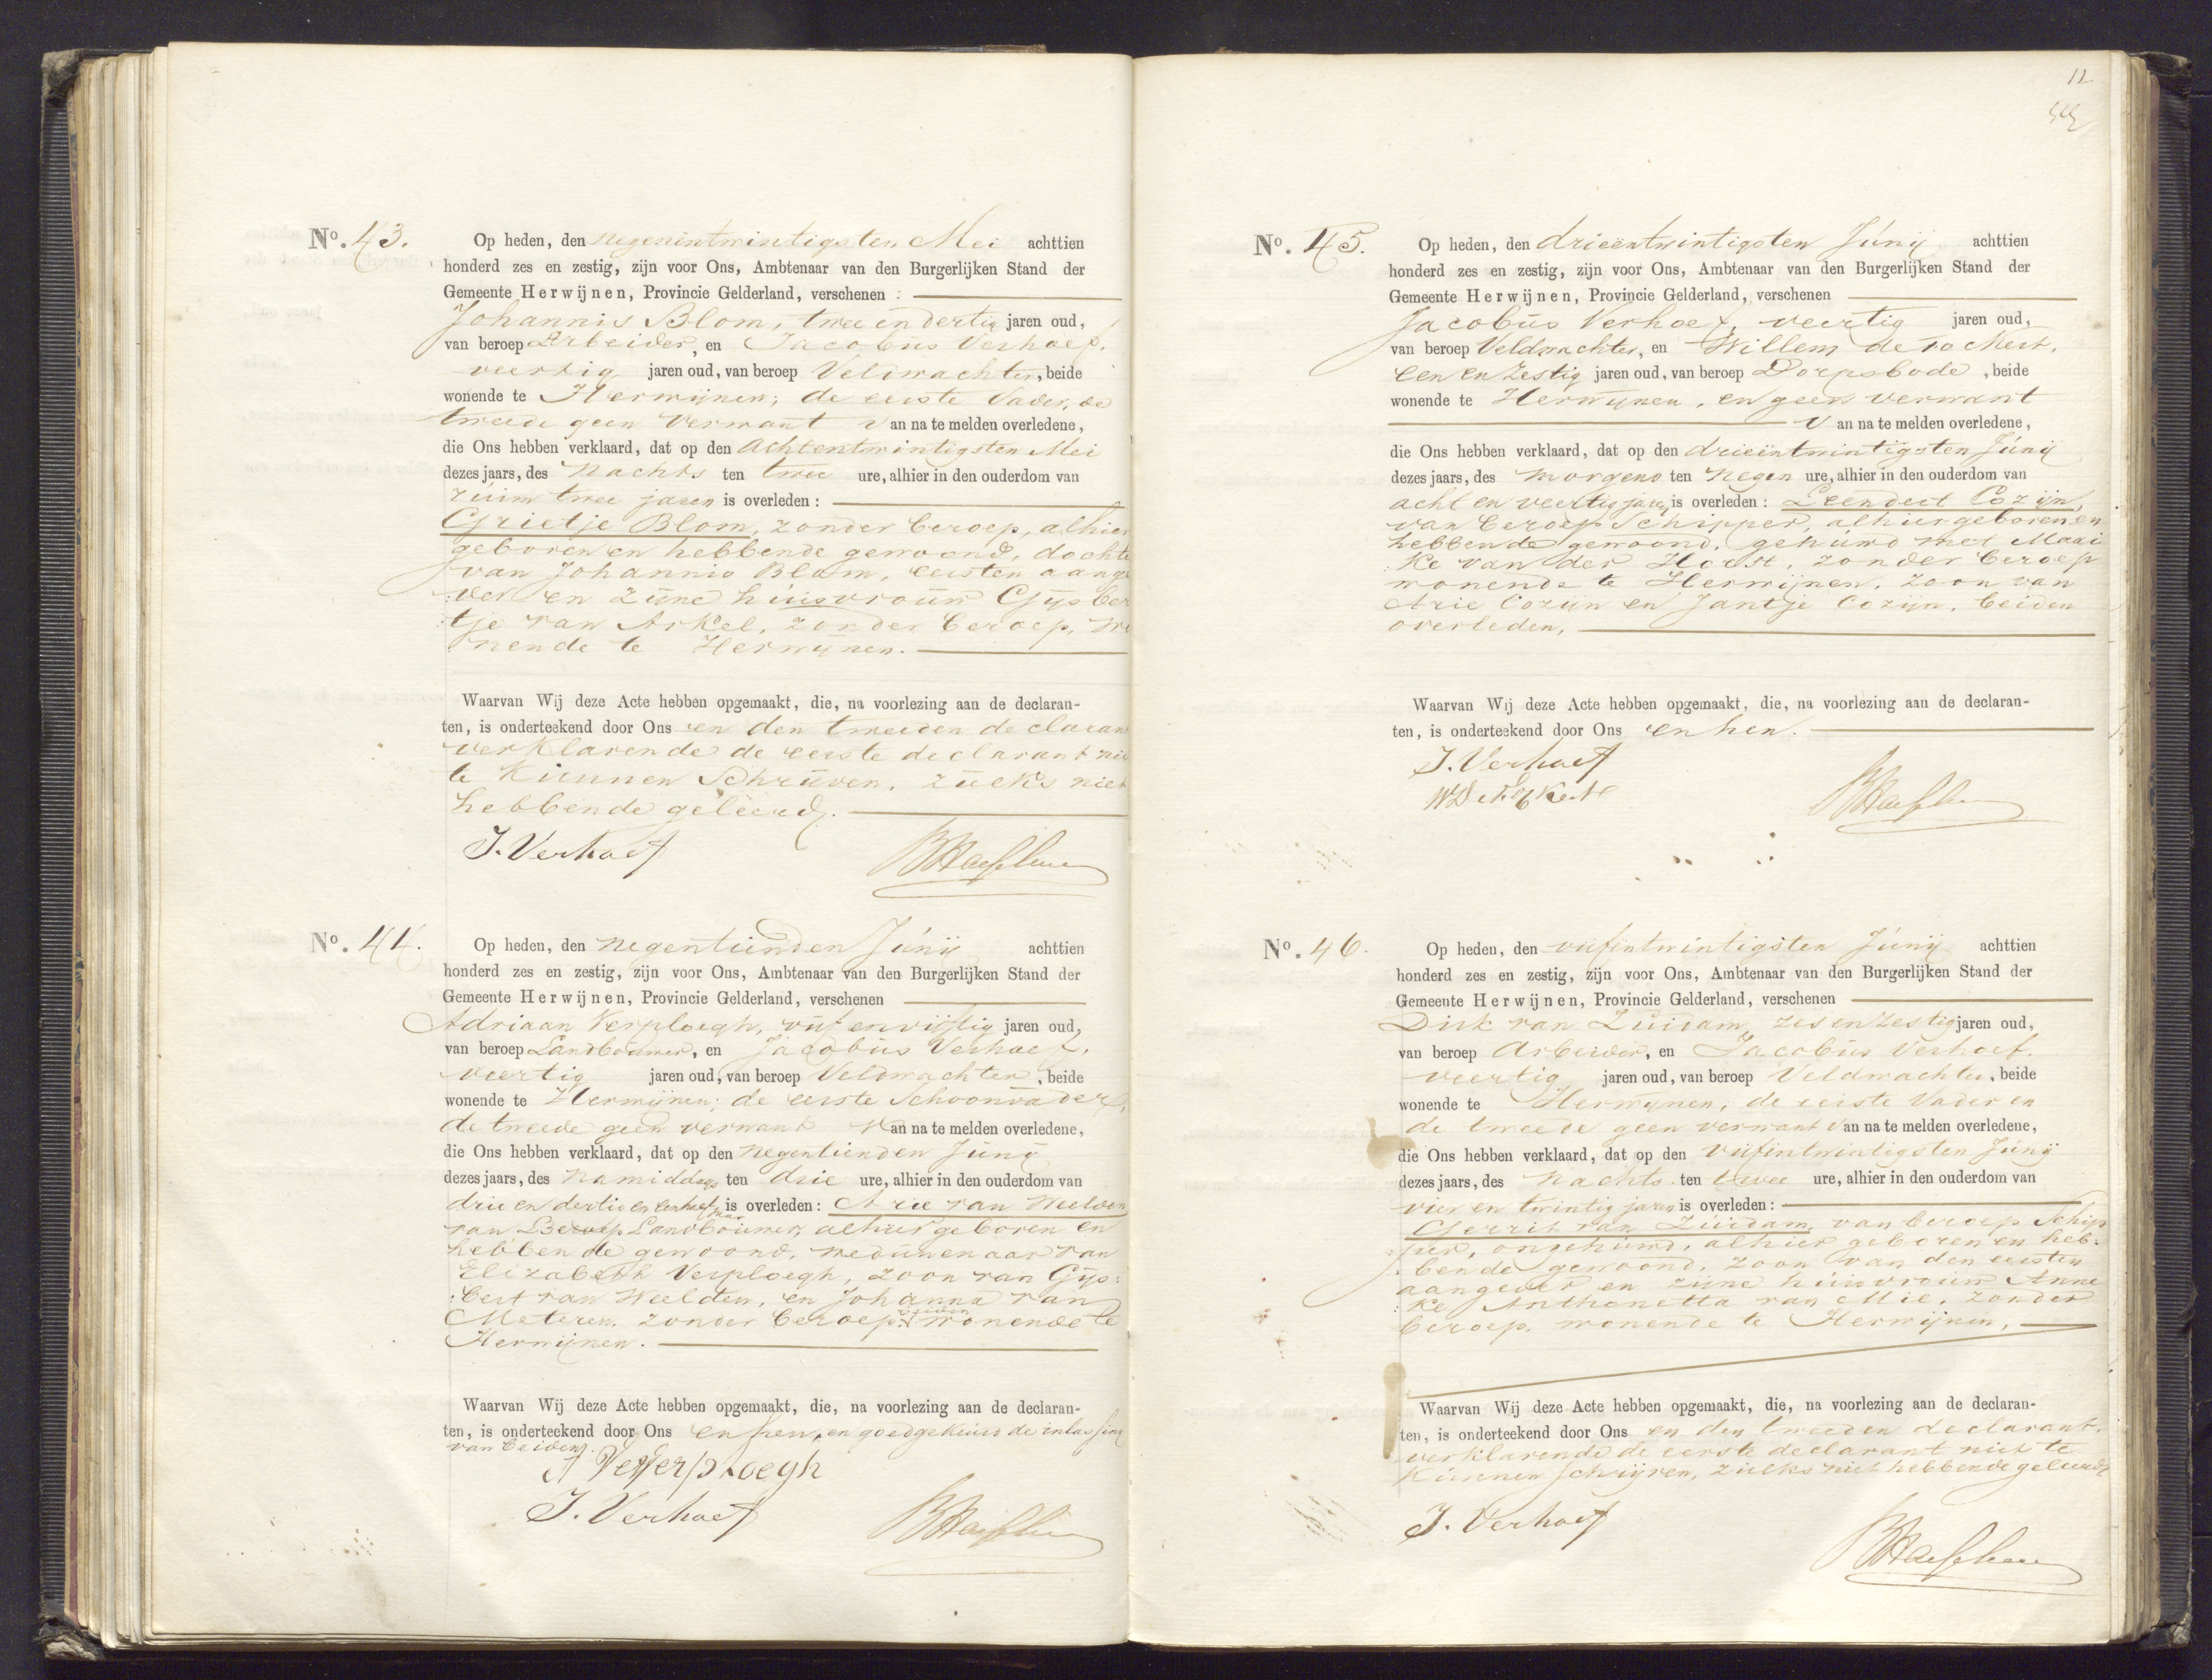 Nº. 43.
Op heden, den negenentwintigsten Mei achttien
honderd zes en zestig, zijn voor Ons, Ambtenaar van den Burgerlijken Stand der
Gemeente Herwijnen, Provincie Gelderland, verschenen :
Johannis Blom, twee en dertig jaren oud,
van beroep Arbeider, en Jacobus Verhoef,
veertig jaren oud, van beroep Veldwachter, beide
wonende te Herwijnen; de eerste Vader, de
tweede geen Verwant van na te melden overledene,
die Ons hebben verklaard, dat op den achtentwintigsten Mei
dezes jaars, des nachts ten twee ure, alhier in den ouderdom van
ruim twee jaren is overleden :
Grietje Blom, zonder beroep, alhier
geboren en hebbende gewoond, dochte
van Johannis Blom, eersten aange
:ver en zijne huisvrouw Gijsber
:tje van Arkel, zonder beroep, wo
nende te Herwijnen.
Waarvan Wij deze Acte hebben opgemaakt, die, na voorlezing aan de declaran-
ten, is onderteekend door Ons en den tweeden declarant
verklarende de eerste declarant nie
te kunnen Schrijven, zulks niet
hebbende geleerd.
J. Verhoef
Nº. 44.
Op heden, den negentienden Junij achttien
honderd zes en zestig, zijn voor Ons, Ambtenaar van den Burgerlijken Stand der
Gemeente Herwijnen, Provincie Gelderland, verschenen
Adriaan Verploegh, vijf en vijftig jaren oud,
van beroep Landbouwer, en Jacobus Verhoef,
veertig jaren oud, van beroep Veldwachter, beide
wonende te Herwijnen; de eerste Schoonvader,
de tweede geen verwant van na te melden overledene,
die Ons hebben verklaard, dat op den negentienden Junij
dezes jaars, des namiddags ten drie ure, alhier in den ouderdom van
drie en dertig en een half jaar is overleden : Arie van Weelden
van Beroep Landbouwer, alhier geboren en
hebbende gewoond, weduwenaar van
Elizabeth Verploegh, zoon van Gijs:
:bert van Weelden, en Johanna van
Meteren, zonder beroep, beiden wonende te
Herwijnen.
Waarvan Wij deze Acte hebben opgemaakt, die, na voorlezing aan de declaran-
ten, is onderteekend door Ons en hen, en goedgekeurd de inlassing
van beiden.
A Verploegh
J. Verhoef
12
Nº. 45.
Op heden, den drieëntwintigsten Junij achttien
honderd zes en zestig, zijn voor Ons, Ambtenaar van den Burgerlijken Stand der
Gemeente Herwijnen, Provincie Gelderland, verschenen
Jacobus Verhoef, veertig jaren oud,
van beroep Veldwachter, en Willem de
een en zestig jaren oud, van beroep Dorpsbode, beide
wonende te Herwijnen, en geen verwant
van na te melden overledene,
die Ons hebben verklaard, dat op den drieëntwintigsten Junij
dezes jaars, des morgens ten negen ure, alhier in den ouderdom van
acht en veertig jaren is overleden : Leendert Cozijn,
van beroep Schipper, alhier geboren en
hebbende gewoond, gehuwd met Maai
:ke van der Horst, zonder beroep
wonende te Herwijnen, zoon van
Arie Cozijn en Jantje Cozijn, beiden
overleden.
Waarvan Wij deze Acte hebben opgemaakt, die, na voorlezing aan de declaran-
ten, is onderteekend door Ons en hen.
J. Verhoef
Nº. 46.
Op heden, den vijfentwintigsten Junij achttien
honderd zes en zestig, zijn voor Ons, Ambtenaar van den Burgerlijken Stand der
Gemeente Herwijnen, Provincie Gelderland, verschenen
Dirk van Zuidam, zes en zestig jaren oud,
van beroep Arbeider, en Jacobus Verhoef,
veertig jaren oud, van beroep Veldwachter, beide
wonende te Herwijnen, de eerste Vader en
de tweede geen verwant van na te melden overledene,
die Ons hebben verklaard, dat op den vijfentwintigsten Junij
dezes jaars, des nachts ten twee ure, alhier in den ouderdom van
vier en twintig jaren is overleden :
Gerrit van Zuidam, van beroep Schip
:per, ongehuwd, alhier geboren en heb:
:bende gewoond, zoon van den eersten
aangever en zijne huisvrouw Anne
:ke Anthonetta van Mie, zonder
beroep, wonende te Herwijnen,
Waarvan Wij deze Acte hebben opgemaakt, die, na voorlezing aan de declaran-
ten, is onderteekend door Ons en den tweeden declarant,
verklarende de eerste declarant niet te
kunnen schrijven, zulks niet hebbende geleerd.
J. Verhoef